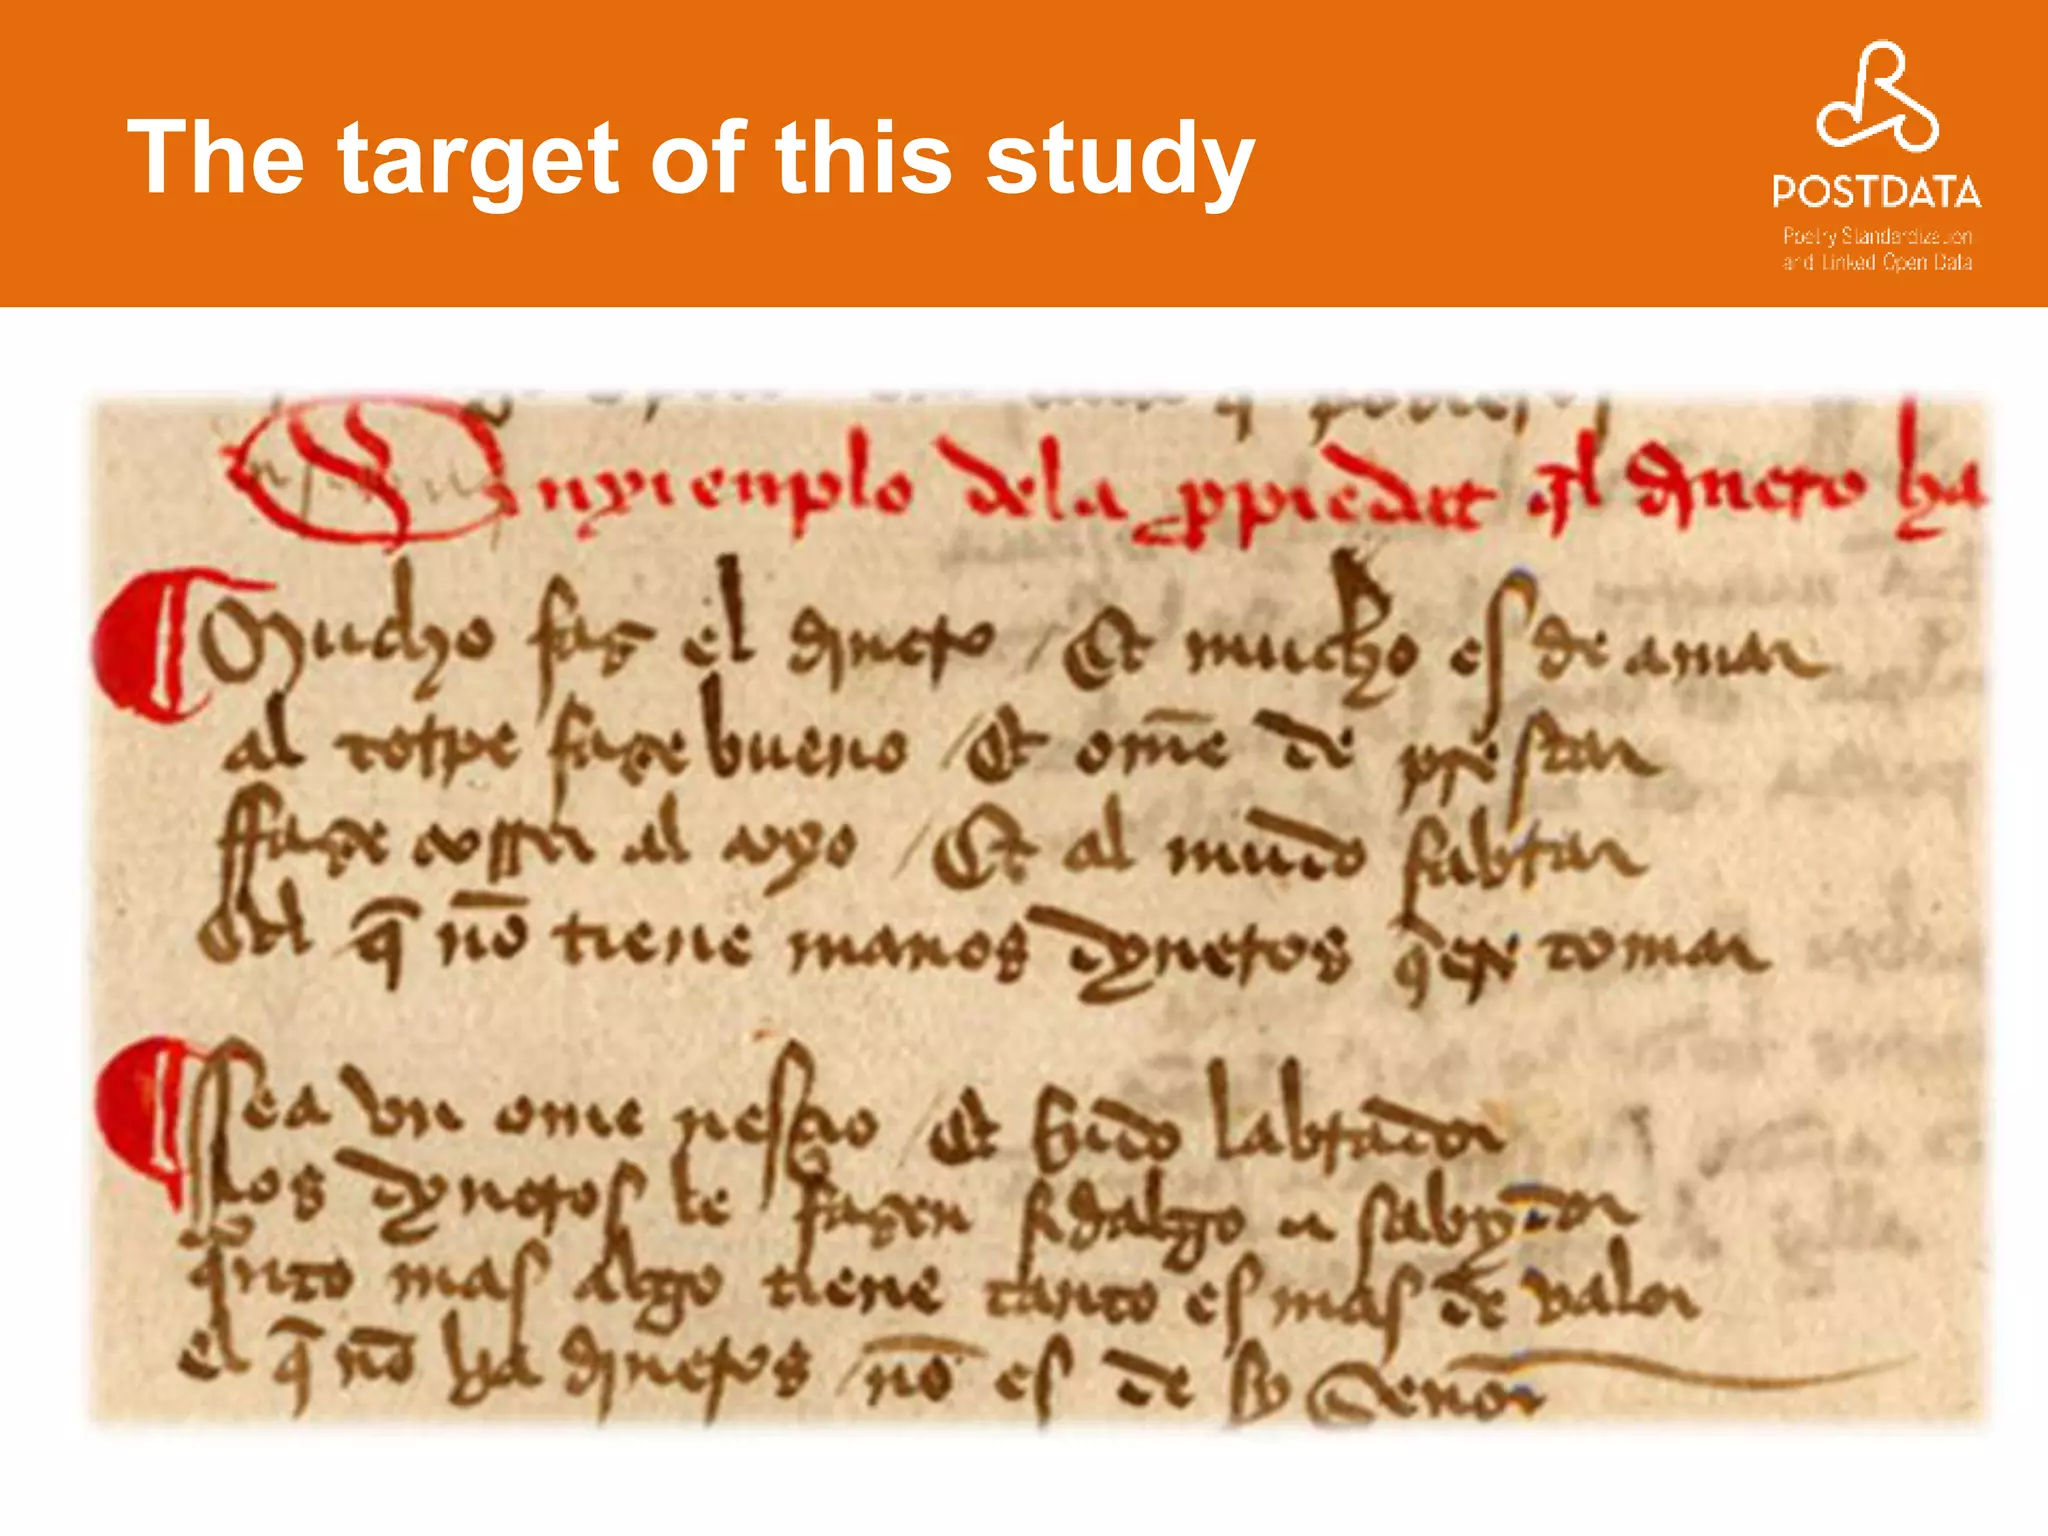 The target of this study
POSTDATA
Poetry Standardization
and Linked Open Data
Enxienplo dela ppiedat q̃l dinero ha
Mucho faz el dinero / Et mucho es de amar
al torpe faze bueno / Et om̃e de prestar
ffaze correr al coxo / Et al mudo fablar
El q̃ nõ tiene manos dyneros qere tomar
sea vn ome nesçio / Et Rudo labrador
los dyneros le fazen fidalgo e sabydor
qnto mas algo tiene tanto es mas de valor
el q̃ nõ ha dineros / nõ es de sy Señor